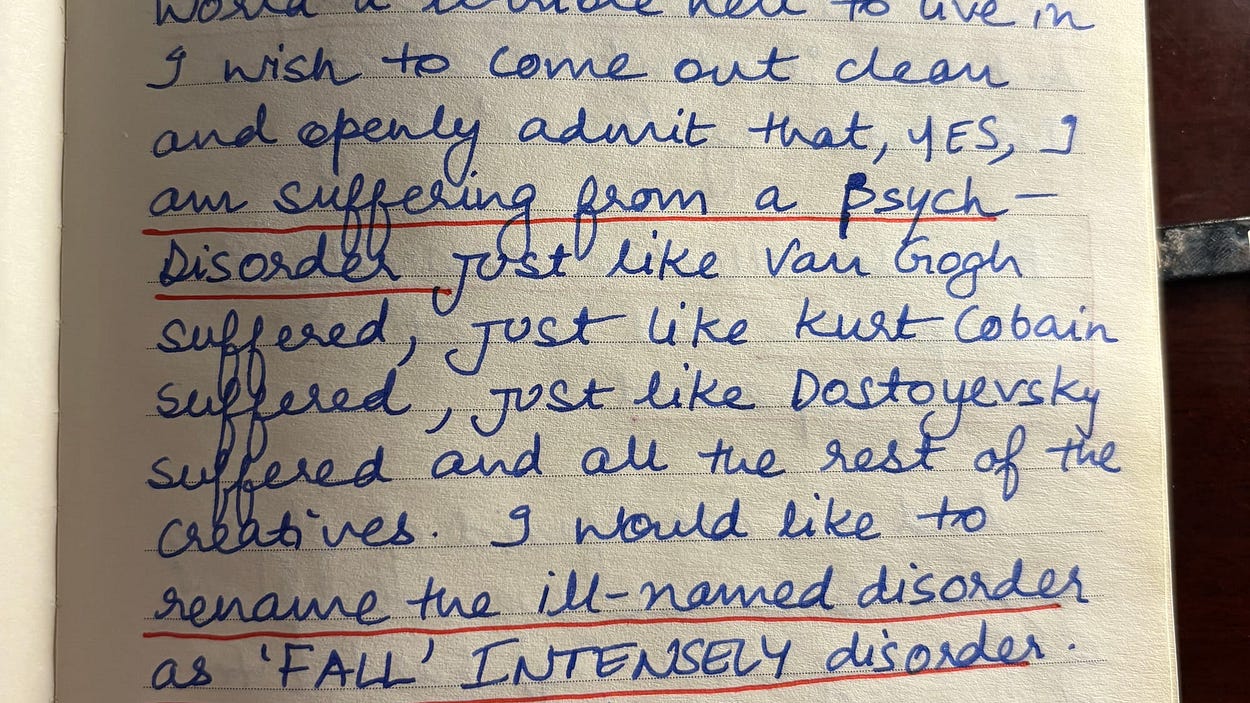 world a terrible hell to live in
I wish to come out clean
and openly admit that, YES, I
am suffering from a Psych-
Disorder just like Van Gogh
suffered, just like Kurt Cobain
suffered, just like Dostoyevsky
suffered and all the rest of the
creatives. I would like to
rename the ill-named disorder
as 'FALL' INTENSELY disorder.